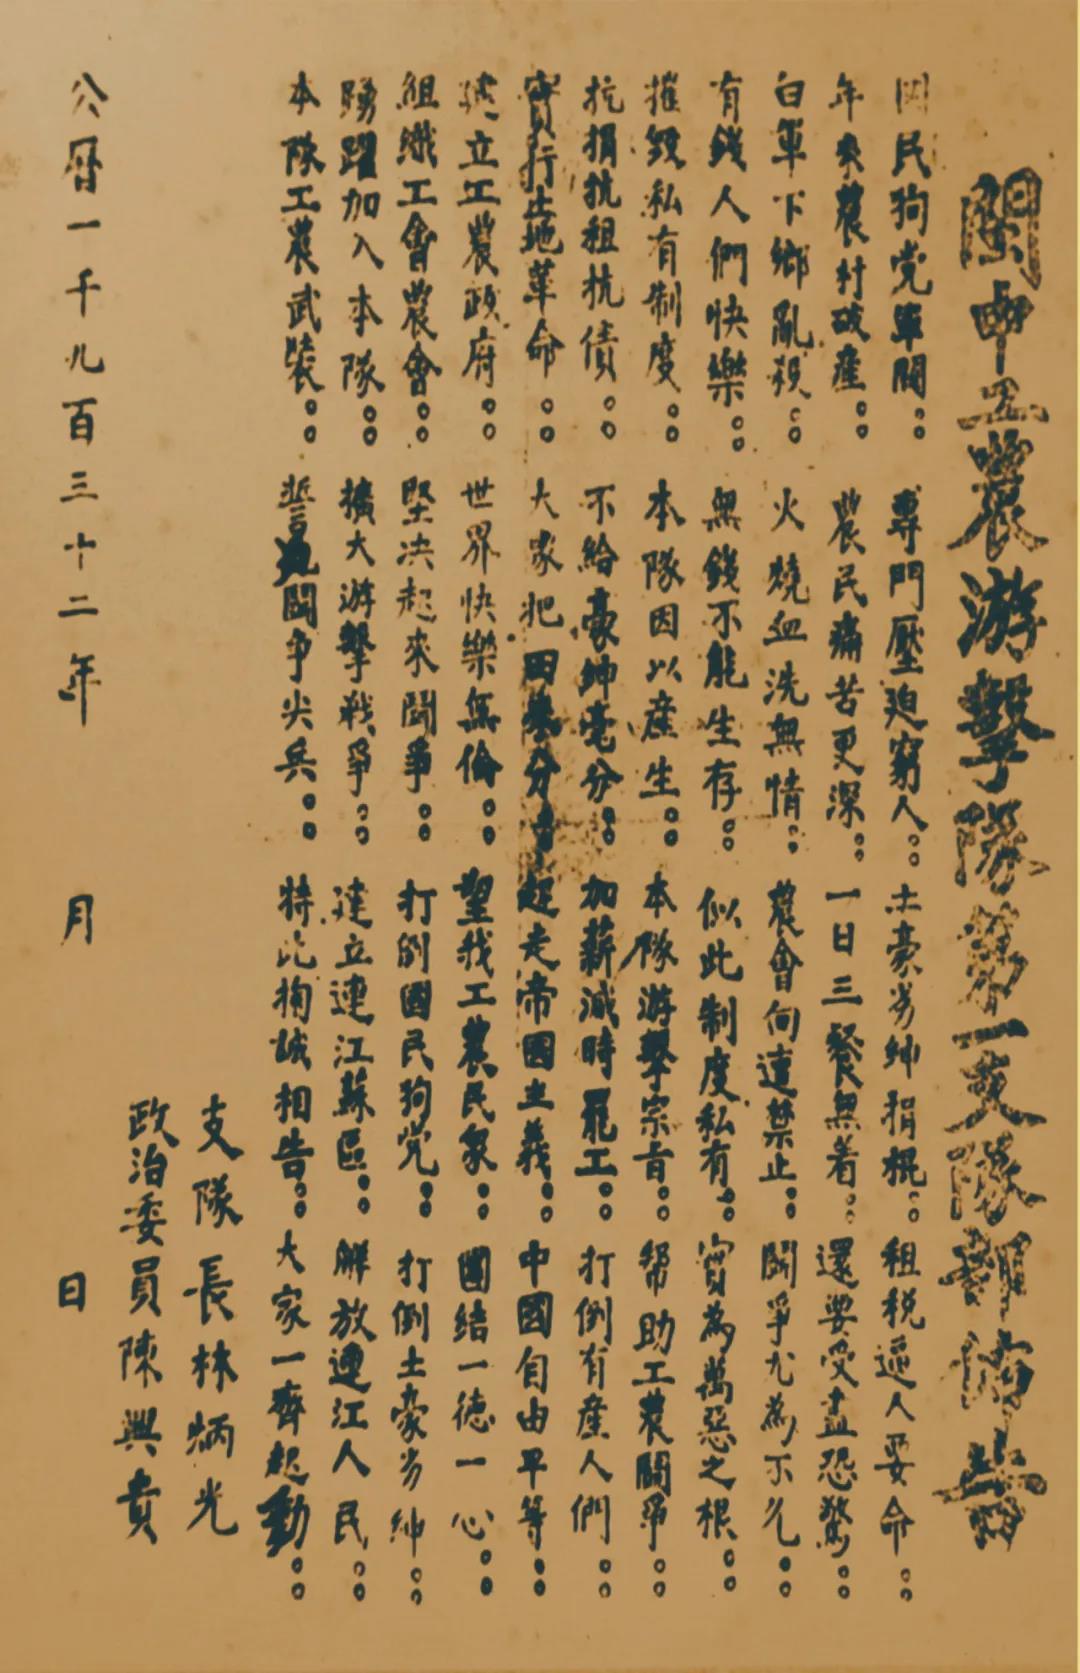 閩中工農游擊隊第一支隊部佈告
国民狗党軍閥：：專門壓迫窮人：：土豪劣紳捐棍：：租稅逼人要命：：
年來農村破產：：農民痛苦更深：：一日三餐無着：：還要受盡恐驚：：
白軍下鄉亂殺：：火燒血洗無情：：農會向遭禁止：：鬪爭尤為不允：：
有錢人們快樂：：無錢不能生存：：似此制度私有：：實為萬惡之根：：
摧毀私有制度：：本隊因以產生：：本隊游擊宗旨：：帮助工農鬪爭：：
抗捐抗租抗債：：不給豪紳毫分：：加薪減時罷工：：打倒有產人們：：
實行土地革命：：大家把田表分：：赶走帝囯主義：：中國自由平等：：
建立工農政府：：世界快樂無倫：：望我工農民眾：：團结一德一心：：
組織工會農會：：堅决起來鬪爭：：打倒國民狗党：：打倒土豪劣紳：：
踴躍加入本隊：：擴大游擊戰爭：：建立連江蘇區：：解放連江人民：：
本隊工農武裝：：誓為鬪争尖兵：：特此掬誠相告：：大家一齊起動：：
支隊長林炳光
政治委員陳興貴
公曆一千九百三十二年　月　日